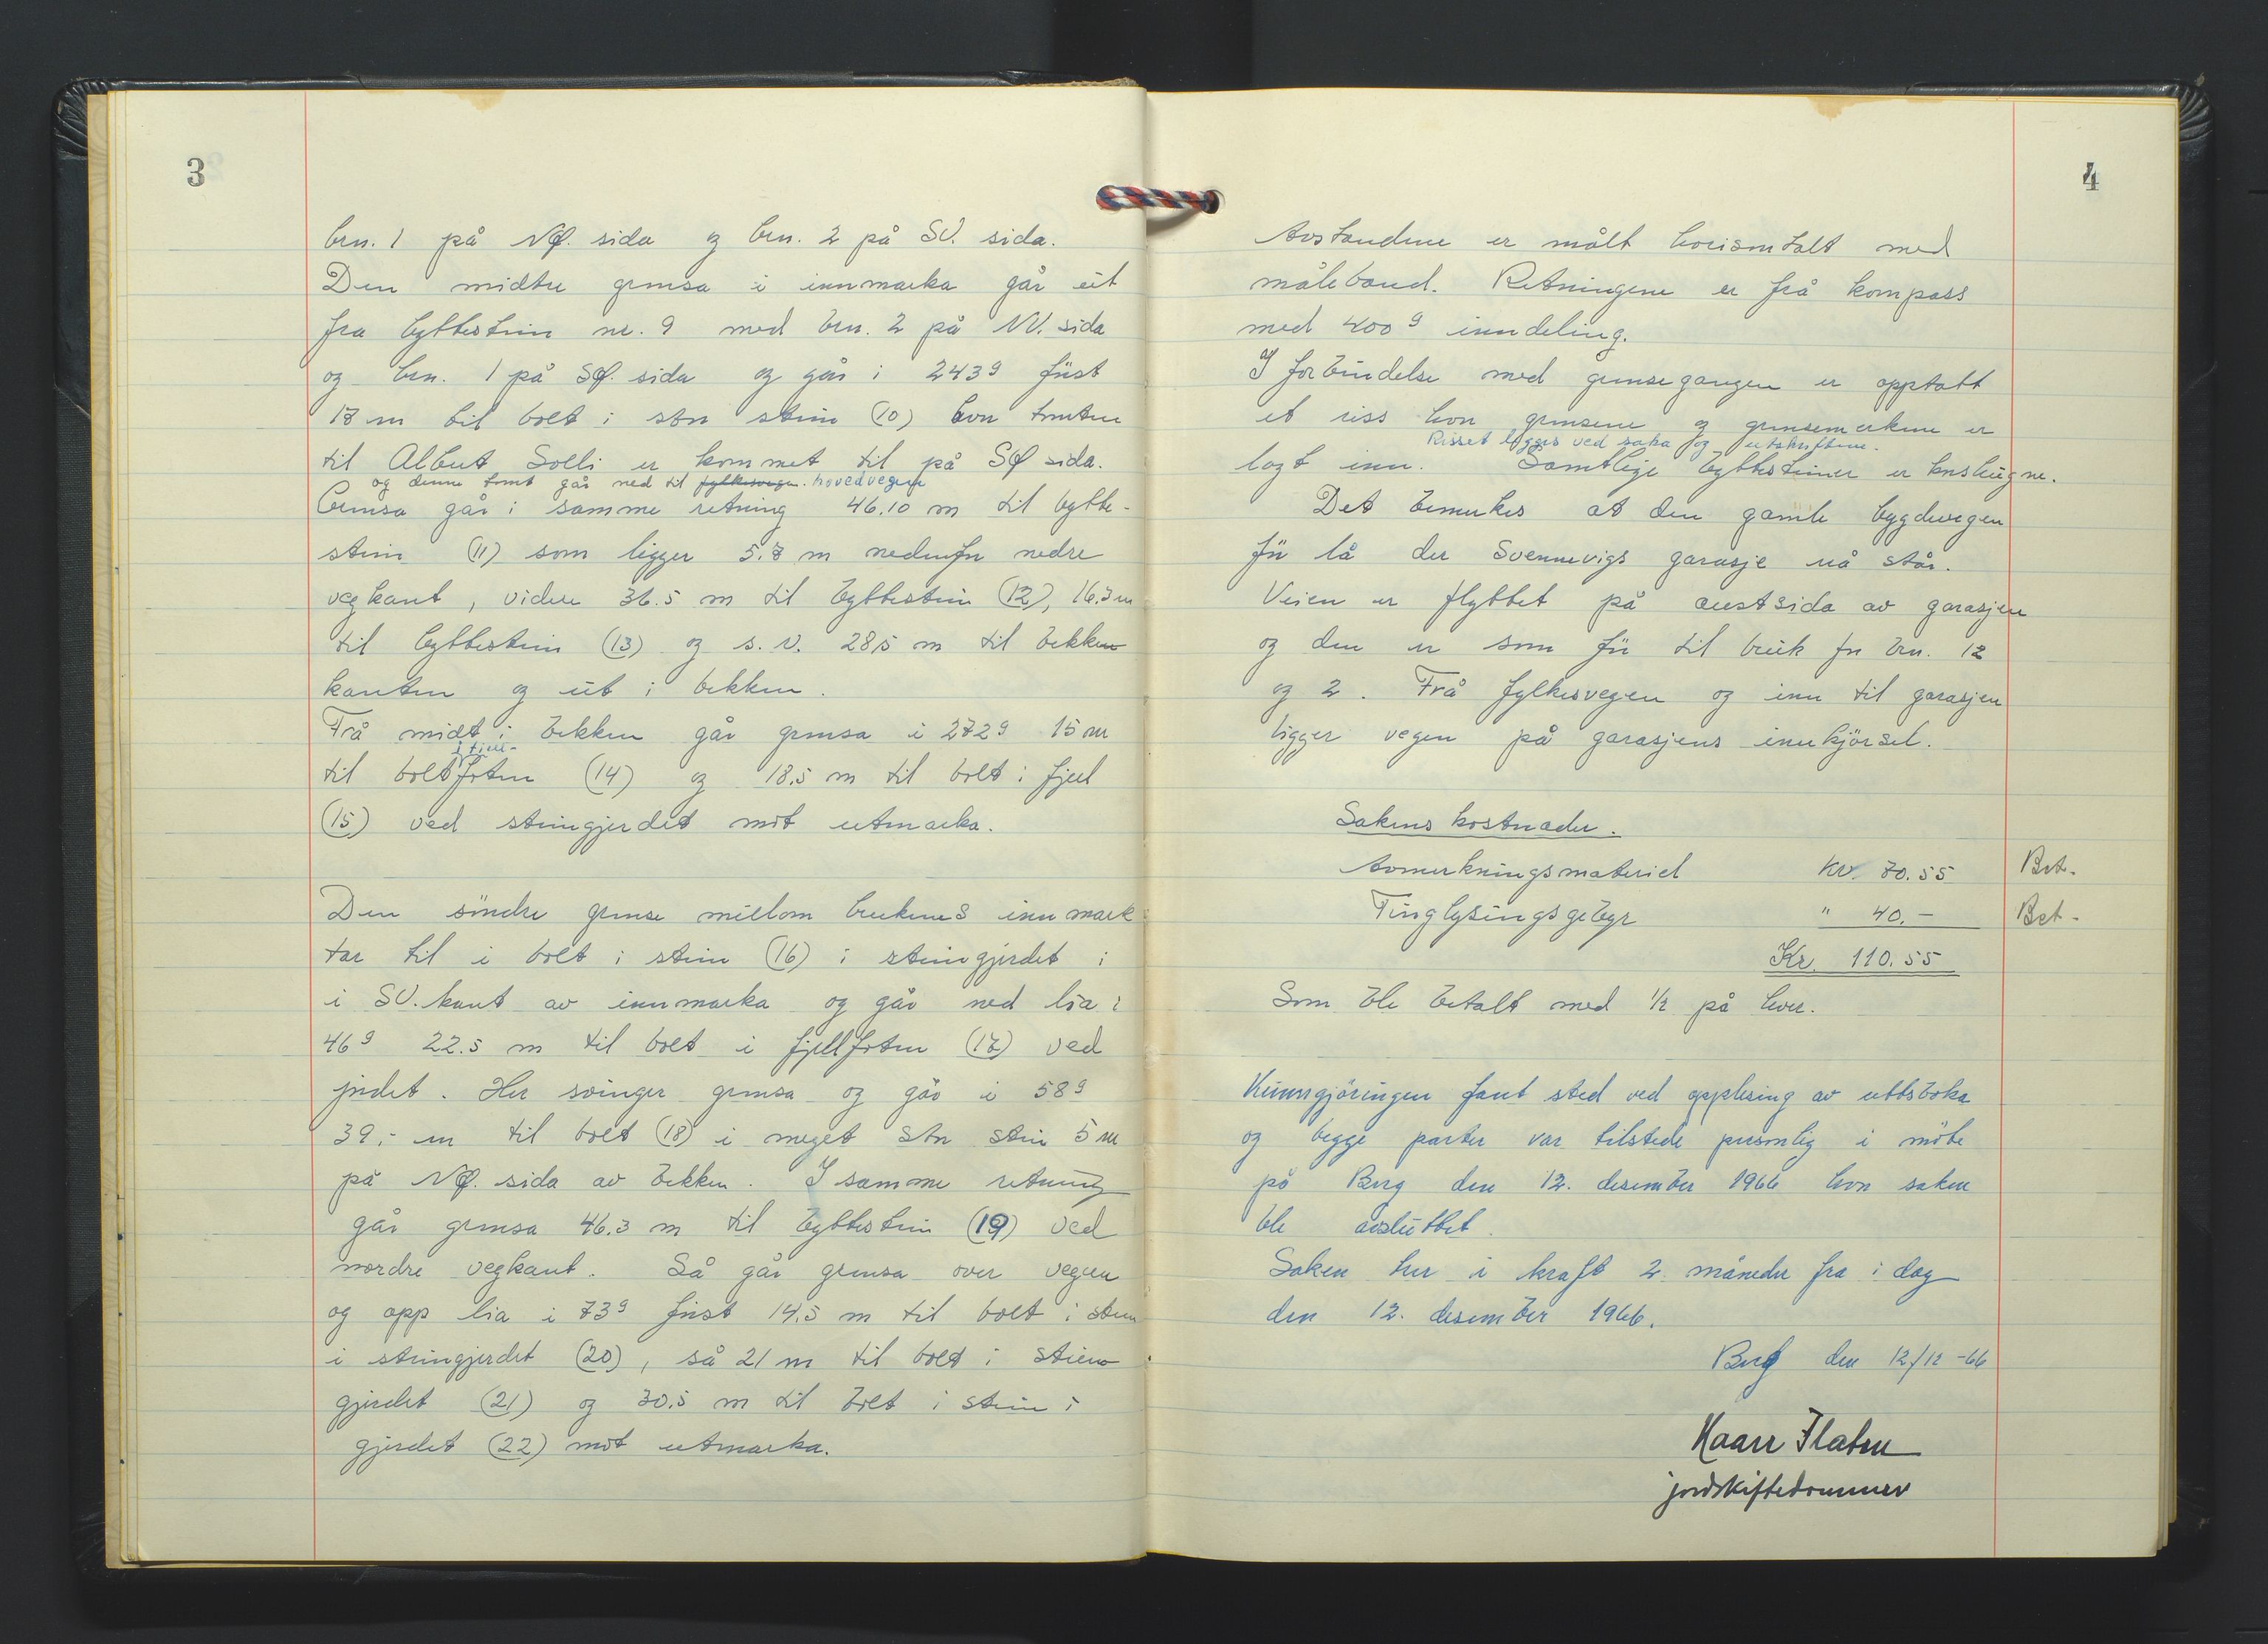 3
brn. 1 på NØ. sida og brn. 2 på SV. sida.
Den midtre grensa i innmarka går ut
fra byttestein nr. 9 med brn. 2 på NV. sida
og brn. 1 på SØ. sida og går i 243g fürst
17 m til bolt i stor stein (10) hvor tomten
til Albert Solli er kommet til på SØ sida.
og denne tomt går ned til fylkesvegen. hovedvegen
Grensa går i samme retning 46.10 m til bytte-
stein (11) som ligger 5.7 m nedenfor nedre
vegkant, videre 36.5 m til byttestein (12), 16.3 m
til byttestein (13) og s. v. 28,5 m til bekken
kanten og ut i bekken.
Frå midt i bekken går grensa i 272g 15 m
i fjell-
til bolt foten (14) og 18.5 m til bolt i fjell
(15) ved steingjerdet mot utmarka.
Den söndre grense mellom brukenes innmark
tar til i bolt i stein (16) i steingjerdet i
i SV. kant av innmarka og går ned lia i
46g 22.5 m til bolt i fjellfoten (17) ved
jordet. Her svinger grensa og går i 58g
39,- m til bolt (18) i meget stor stein 5 m
på NØ. sida av bekken. I samme retning
går grensa 46.3 m til byttestein (19) ved
nordre vegkant. Så går grensa over vegen
og opp lia i 73g först 14.5 m til bolt i stein
i steingjerdet (20), så 21 m til bolt i stein
gjerdet (21) og 30.5 m til bolt i stein i
gjerdet (22) mot utmarka.
4
Avstandene er målt horisontalt med
måleband. Retningene er frå kompass
med 400g inndeling.
I forbindelse med grensegangen er opptatt
et riss hvor grensene og grensemerkene er
Risset legges ved saka og utskriftene.
lagt inn. Samtlige byttesteiner er konshugne.
Det bemerkes at den gamle bygdevegen
för lå der Svennevigs garasje nå står.
Veien er flyttet på austsida av garasjen
og den er som för til bruk for brn. 12
og 2. Frå fylkesvegen og inn til garasjen
ligger vegen på garasjens innkjörsel.
Sakens kostnader.
Avmerkningsmateriel Kr. 70.55 Bet.
Tinglysingsgebyr " 40.- Bet-
Kr. 110.55
Som ble betalt med 1/2 på hver.
Kunngjöringen fant sted ved opplesing av rettsboka
og begge parter var tilstede personlig i möte
på Berg den 12. desember 1966 hvor saken
ble avsluttet.
Saken trer i kraft 2 måneder fra i dag
den 12. desember 1966.
Berg den 12/12 -66
Kaare Flaten
jordskiftedommer